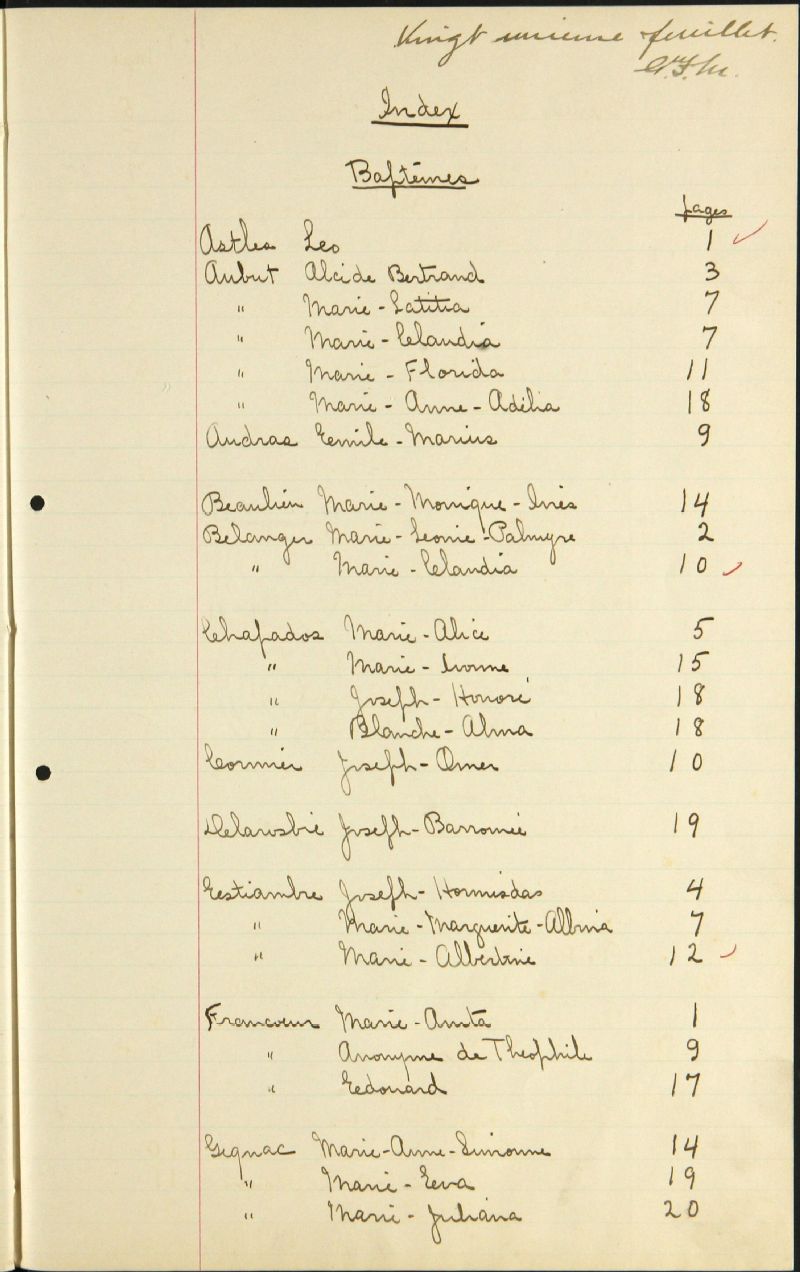 Vingt unieme feuillet.
G.F.M.
Index
Baptêmes
pages
Astles Leo 1
Aubut Alcide Bertrand 3
" Marie-Latitia 7
" Marie-Claudia 7
" Marie-Florida 11
" Marie-Anne-Adélia 18
Andras Eemile-Marius 9
Beaulieu Marie-Monique-Inès 14
Belanger Marie-Leonie-Palmyre 2
" Marie-Claudia 10
Chapados Marie-Alice 5
" Marie-Ivonne 15
" Joseph-Honoré 18
" Blanche-Alma 18
Cormier Joseph-Omer 10
Delarosbie Joseph-Barromée 19
Eestiambre Joseph-Hormisdas 4
" Marie-Marguerite-Albina 7
" Marie-Albertine 12
Francoeur Marie-Anita 1
" Anonyme de Theophile 9
" Eedouard 17
Gignac Marie-Anne-Simonne 14
" Marie-Eeva 19
" Marie-Juliana 20